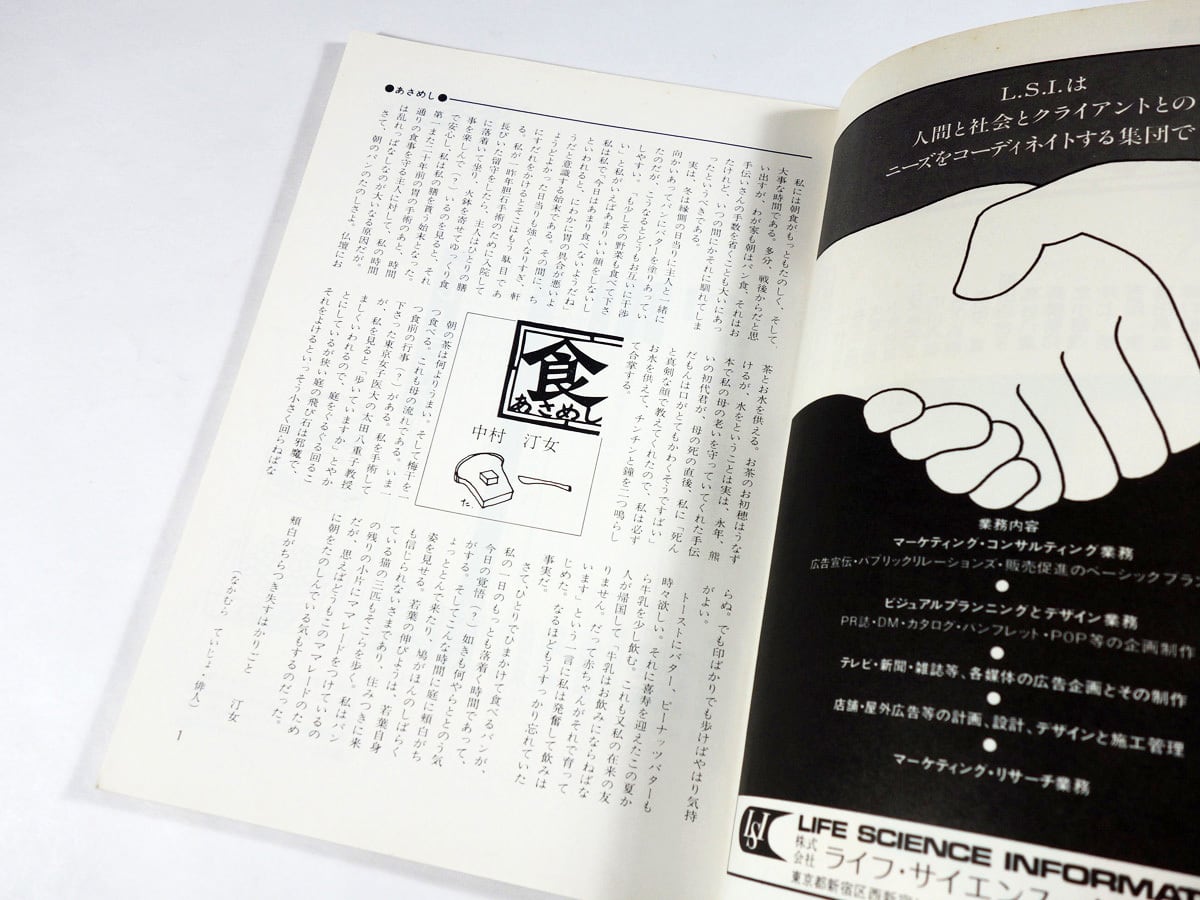 ●あさめし●
私には朝食がもっともたのしく、そして、
大事な時間である。多分、戦後からだと思
い出すが、わが家も朝はパン食、それはお
手伝いさんの手数を省くことも大いにあっ
たけれど、いつの間にかそれに馴れてしま
ったというべきである。
実は、冬は縁側の日当りに主人と一緒に
向かいあってパンにバターを塗りあってい
たのだが、こうなるとどうもお互いに干渉
しやすい。も少しその野菜も食べて下さ
い」と私がいえばあまりいい顔をしないし
私は私で「今日はあまり食べないようだね」
といわれると、にわかに胃の具合が悪いよ
うだと意識する始末である。その間に、ち
ょうどよかった日当りも強くなりすぎ、軒
にすだれをかけるとそこはもう駄目であ
る。私が一昨年胆石手術のために入院して
長びいた留守をしたら、主人はひとりの膳
に落着いて坐り、火鉢を寄せてゆっくり食
事を楽しんで(?)いるのを見ると、それ
で安心し、私は私の膳を貰う始末となった。
第一また二十年前の胃の手術のあと、時間
通りの食事を守る主人に対して、私の時間
は乱れっぱなしなのが大いなる原因だが。
さて、朝のパンのたのしさよ。仏壇にお
茶とお水を供える。お茶のお初穂はうなず
けるが、水をということは実は、永年、熊
本で私の母の老いを守っていてくれた手伝
いの初代君が、母の死の直後、私に「死ん
だもんは口がとてもかわくそうですばい」
と真剣な顔で教えてくれたので、私は必ず
お水を供えて、チンチンと鐘を二つ鳴らし
て合掌する。
食
あさめし
中村 汀女
た.
朝の茶は何よりうまい。そして梅干を一
つ食べる。これも母の流れである。いま一
つ食前の行事(?)がある。私を手術して
下さった東京女子医大の太田八重子教授
が、私を見ると「歩いていますか」とやか
ましくいわれるので、庭をぐるぐる回るこ
とにしているが狭い庭の飛び石は邪魔で、
それをよけるといっそう小さく回らねばな
らぬ。でも印ばかりでも歩けばやはり気持
がよい。
トーストにバター、ピーナッツバターも
時々欲しい。それに喜寿を迎えたこの夏か
ら牛乳を少し飲む。これも又私の在来の友
人が帰国して「牛乳はお飲みにならねばな
りません。だって赤ちゃんがそれで育って
います」という一言に私は発奮して飲みは
じめた。なるほどもうすっかり忘れていた
事実だ。
さて、ひとりでひまかけて食べるパンが、
私の一日のもっとも落着く時間であって、
今日の覚悟(?)如きも何やらととのう気
がする。そしてこんな時間に庭に頬白がち
ょっととんで来たり、鳩がほんのしばらく
姿を見せる。若葉の伸びようは、若葉自身
も信じられないさまであり、住みつきに来
ている猫の三匹もそこらを歩く。私はパン
の残りの小片にママレードをつけているの
だが、思えばどうもこのママレードのため
に朝をたのしんでいる気もするのだった。
頬白がちらつき失すはかりごと 汀女
(なかむら ていじょ・俳人)
1
L.S.I.は
人間と社会とクライアントとの
ニーズをコーディネイトする集団で
業務内容
マーケティング・コンサルティング業務
広告宣伝・パブリックリレーションズ・販売促進のベーシックプラ
ビジュアルプランニングとデザイン業務
PR誌・DM・カタログ・パンフレット・POP等の企画制作
テレビ・新聞・雑誌等、各媒体の広告企画とその制作
店舗・屋外広告等の計画、設計、デザインと施工管理
マーケティング・リサーチ業務
LSI
LIFE SCIENCE INFORMAT
株式会社 ライフ・サイエンス・
東京都新宿区西新宿